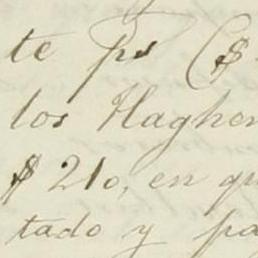 te ps ($
los Haghen
$ 210, en qu
tado y pa